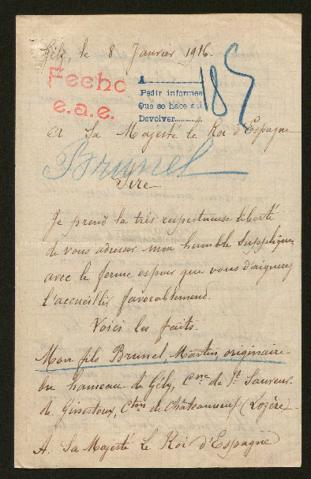 Gély, le 8 Janvier 1916.
Fecho
e.a.e.
A
Pedir informes
Que se hace así
Devolver
185
A Sa Majesté le Roi d'Espagne
Brunel
Sire
Je prend la très respectueuse liberté
de vous adresser mon humble supplique
avec le ferme espoir que vous daignerez
l'accueillir favorablement.
Voici les faits.
Mon fils Brunel Martin, originaire
du hameau de Gély, cne de St Sauveur
de Ginestoux, Cton de Châteauneuf (Lozère
A. Sa Majesté Le Roi d'Espagne